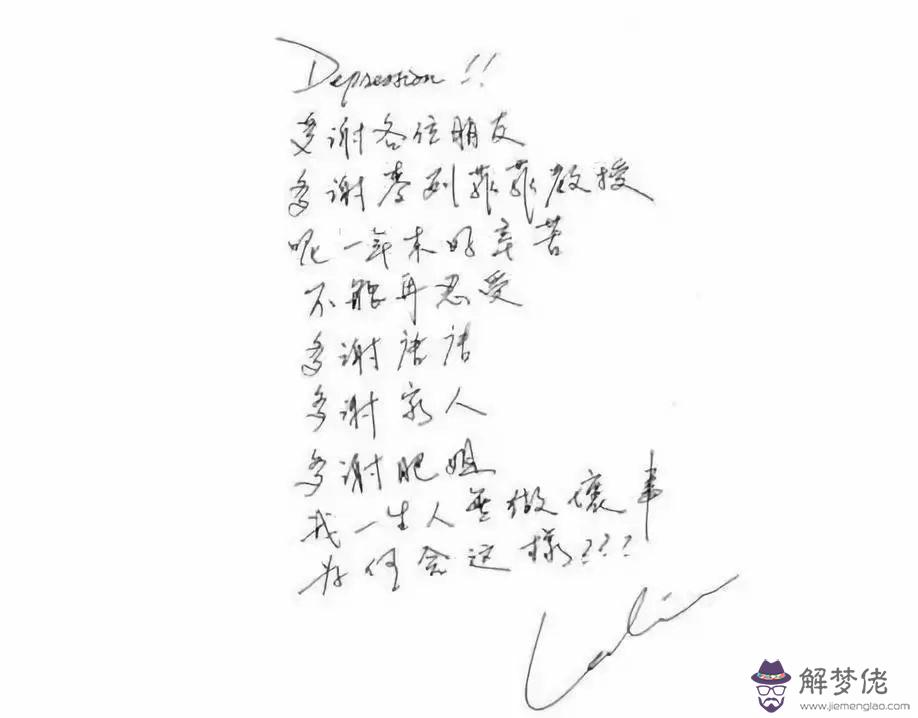 Depression!!
多谢各位朋友
多谢麥列菲菲教授
呢一年来好辛苦
不能再忍受
多谢唐唐
多谢家人
多谢肥姐
我一生人無做壞事
为何会这樣???
Leslie
解梦佬
www.jiemenglao.com